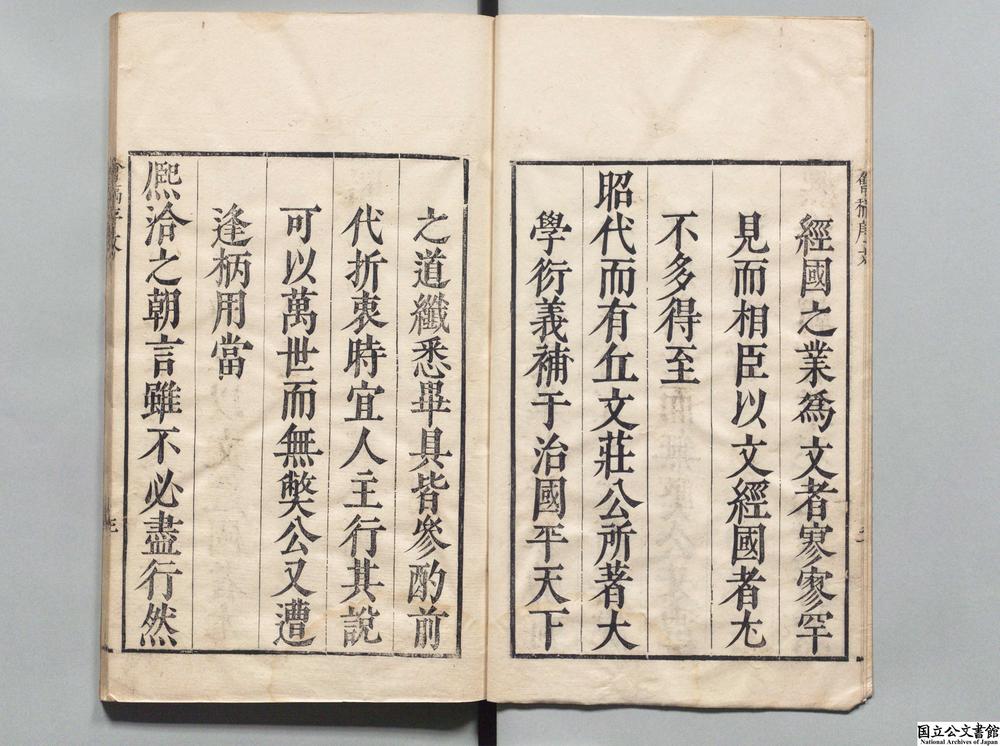 經國之業爲文者寥寥罕
見而相臣以文經國者尤
不多得至
昭代而有丘文莊公所著大
學衍義補于治國平天下
之道纖悉畢具皆參酌前
代折衷時宜人主行其說
可以萬世而無獘公又遭
逢柄用當
熈洽之朝言雖不必盡行然
国立公文書館
National Archives of Japan